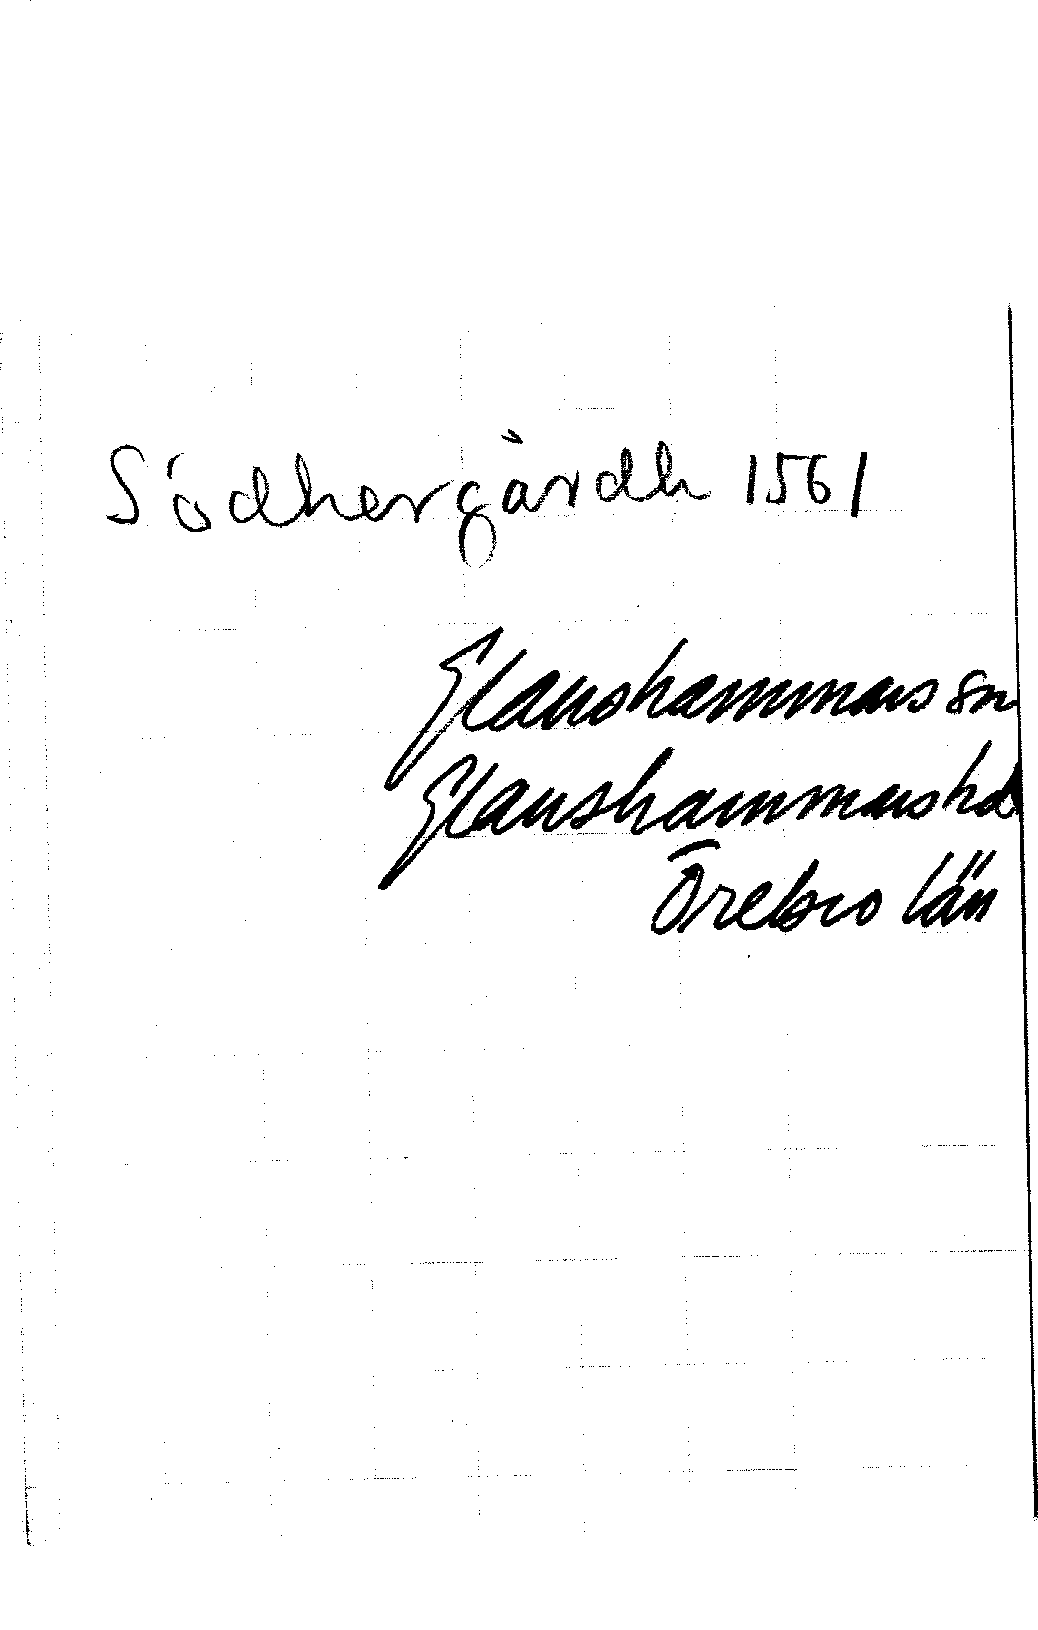 Södhergårdh 1561
Glanshammars sn
Glanshammars hd
Örebro län